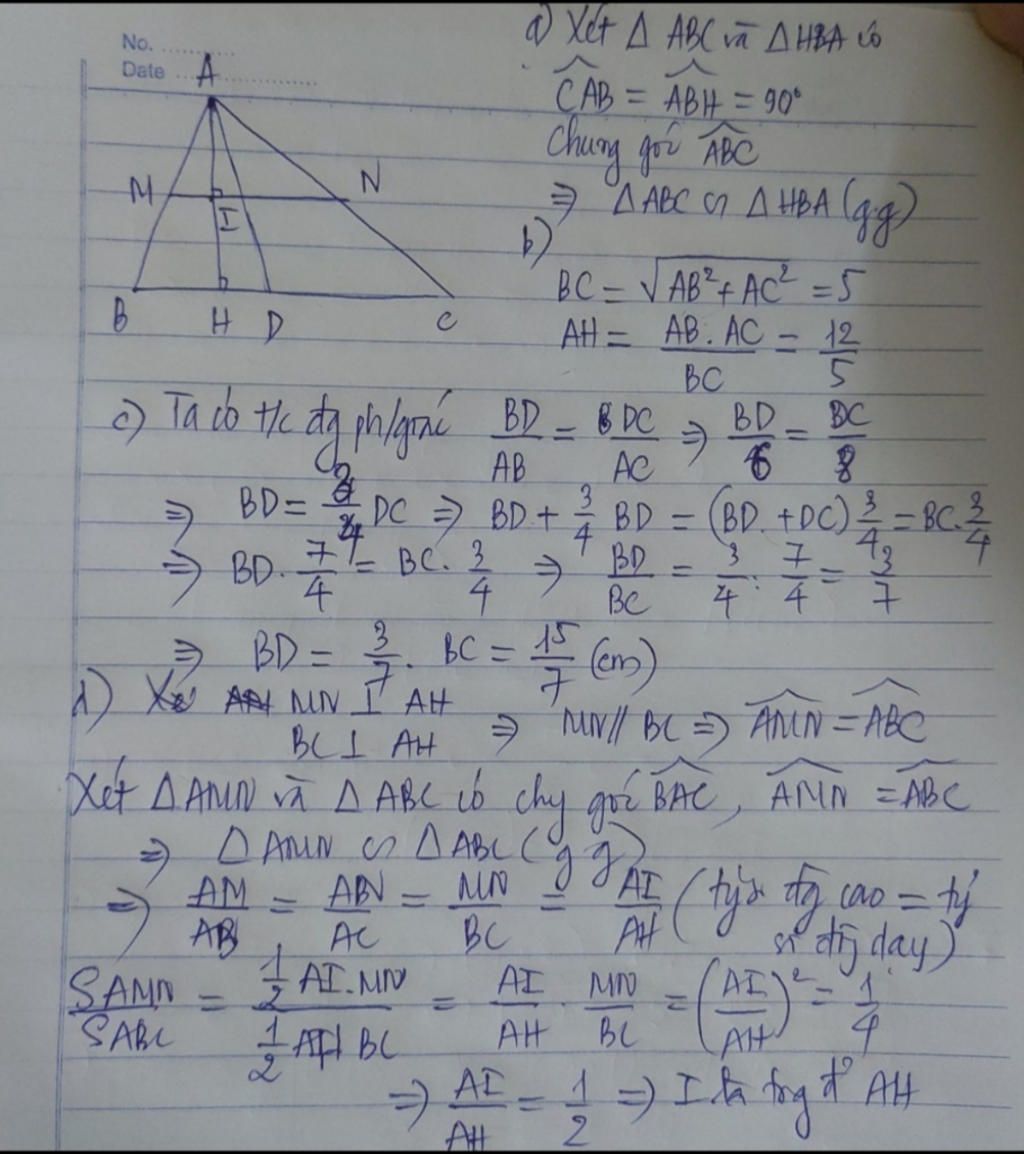 No. ............
Date ............
A
M
N
I
B
H
D
C
a) Xét Δ ABC và Δ HBA có
CAB = ABH = 90°
Chung góc ABC
⇒ Δ ABC ∽ Δ HBA (g.g)
b)
BC = √(AB² + AC²) = 5
AH = AB . AC / BC = 12/5
c) Ta có t/c đg ph/giác BD/AB = DC/AC ⇒ BD/6 = DC/8
⇒ BD = 3/4 DC ⇒ BD + 3/4 BD = (BD + DC) 3/4 = BC . 3/4
⇒ BD . 7/4 = BC . 3/4 ⇒ BD/BC = 3/4 : 7/4 = 3/7
⇒ BD = 3/7 . BC = 15/7 (cm)
d) MN ⊥ AH
BC ⊥ AH ⇒ MN // BC ⇒ AMN = ABC
Xét Δ AMN và Δ ABC có chg góc BAC, AMN = ABC
⇒ Δ AMN ∽ Δ ABC (g g)
⇒ AM/AB = AN/AC = MN/BC = AI/AH (tỷ s đg cao = tỷ
s đg day)
SAMN/SABC = 1/2 AI . MN / 1/2 AH BC = AI/AH . MN/BC = (AI/AH)² = 1/4
⇒ AI/AH = 1/2 ⇒ I là trg đ AH